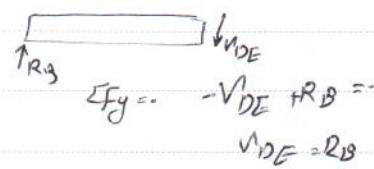 ↓V_DE
↑R_B
ΣFy = 0 -V_DE + R_B = 0
V_DE = R_B